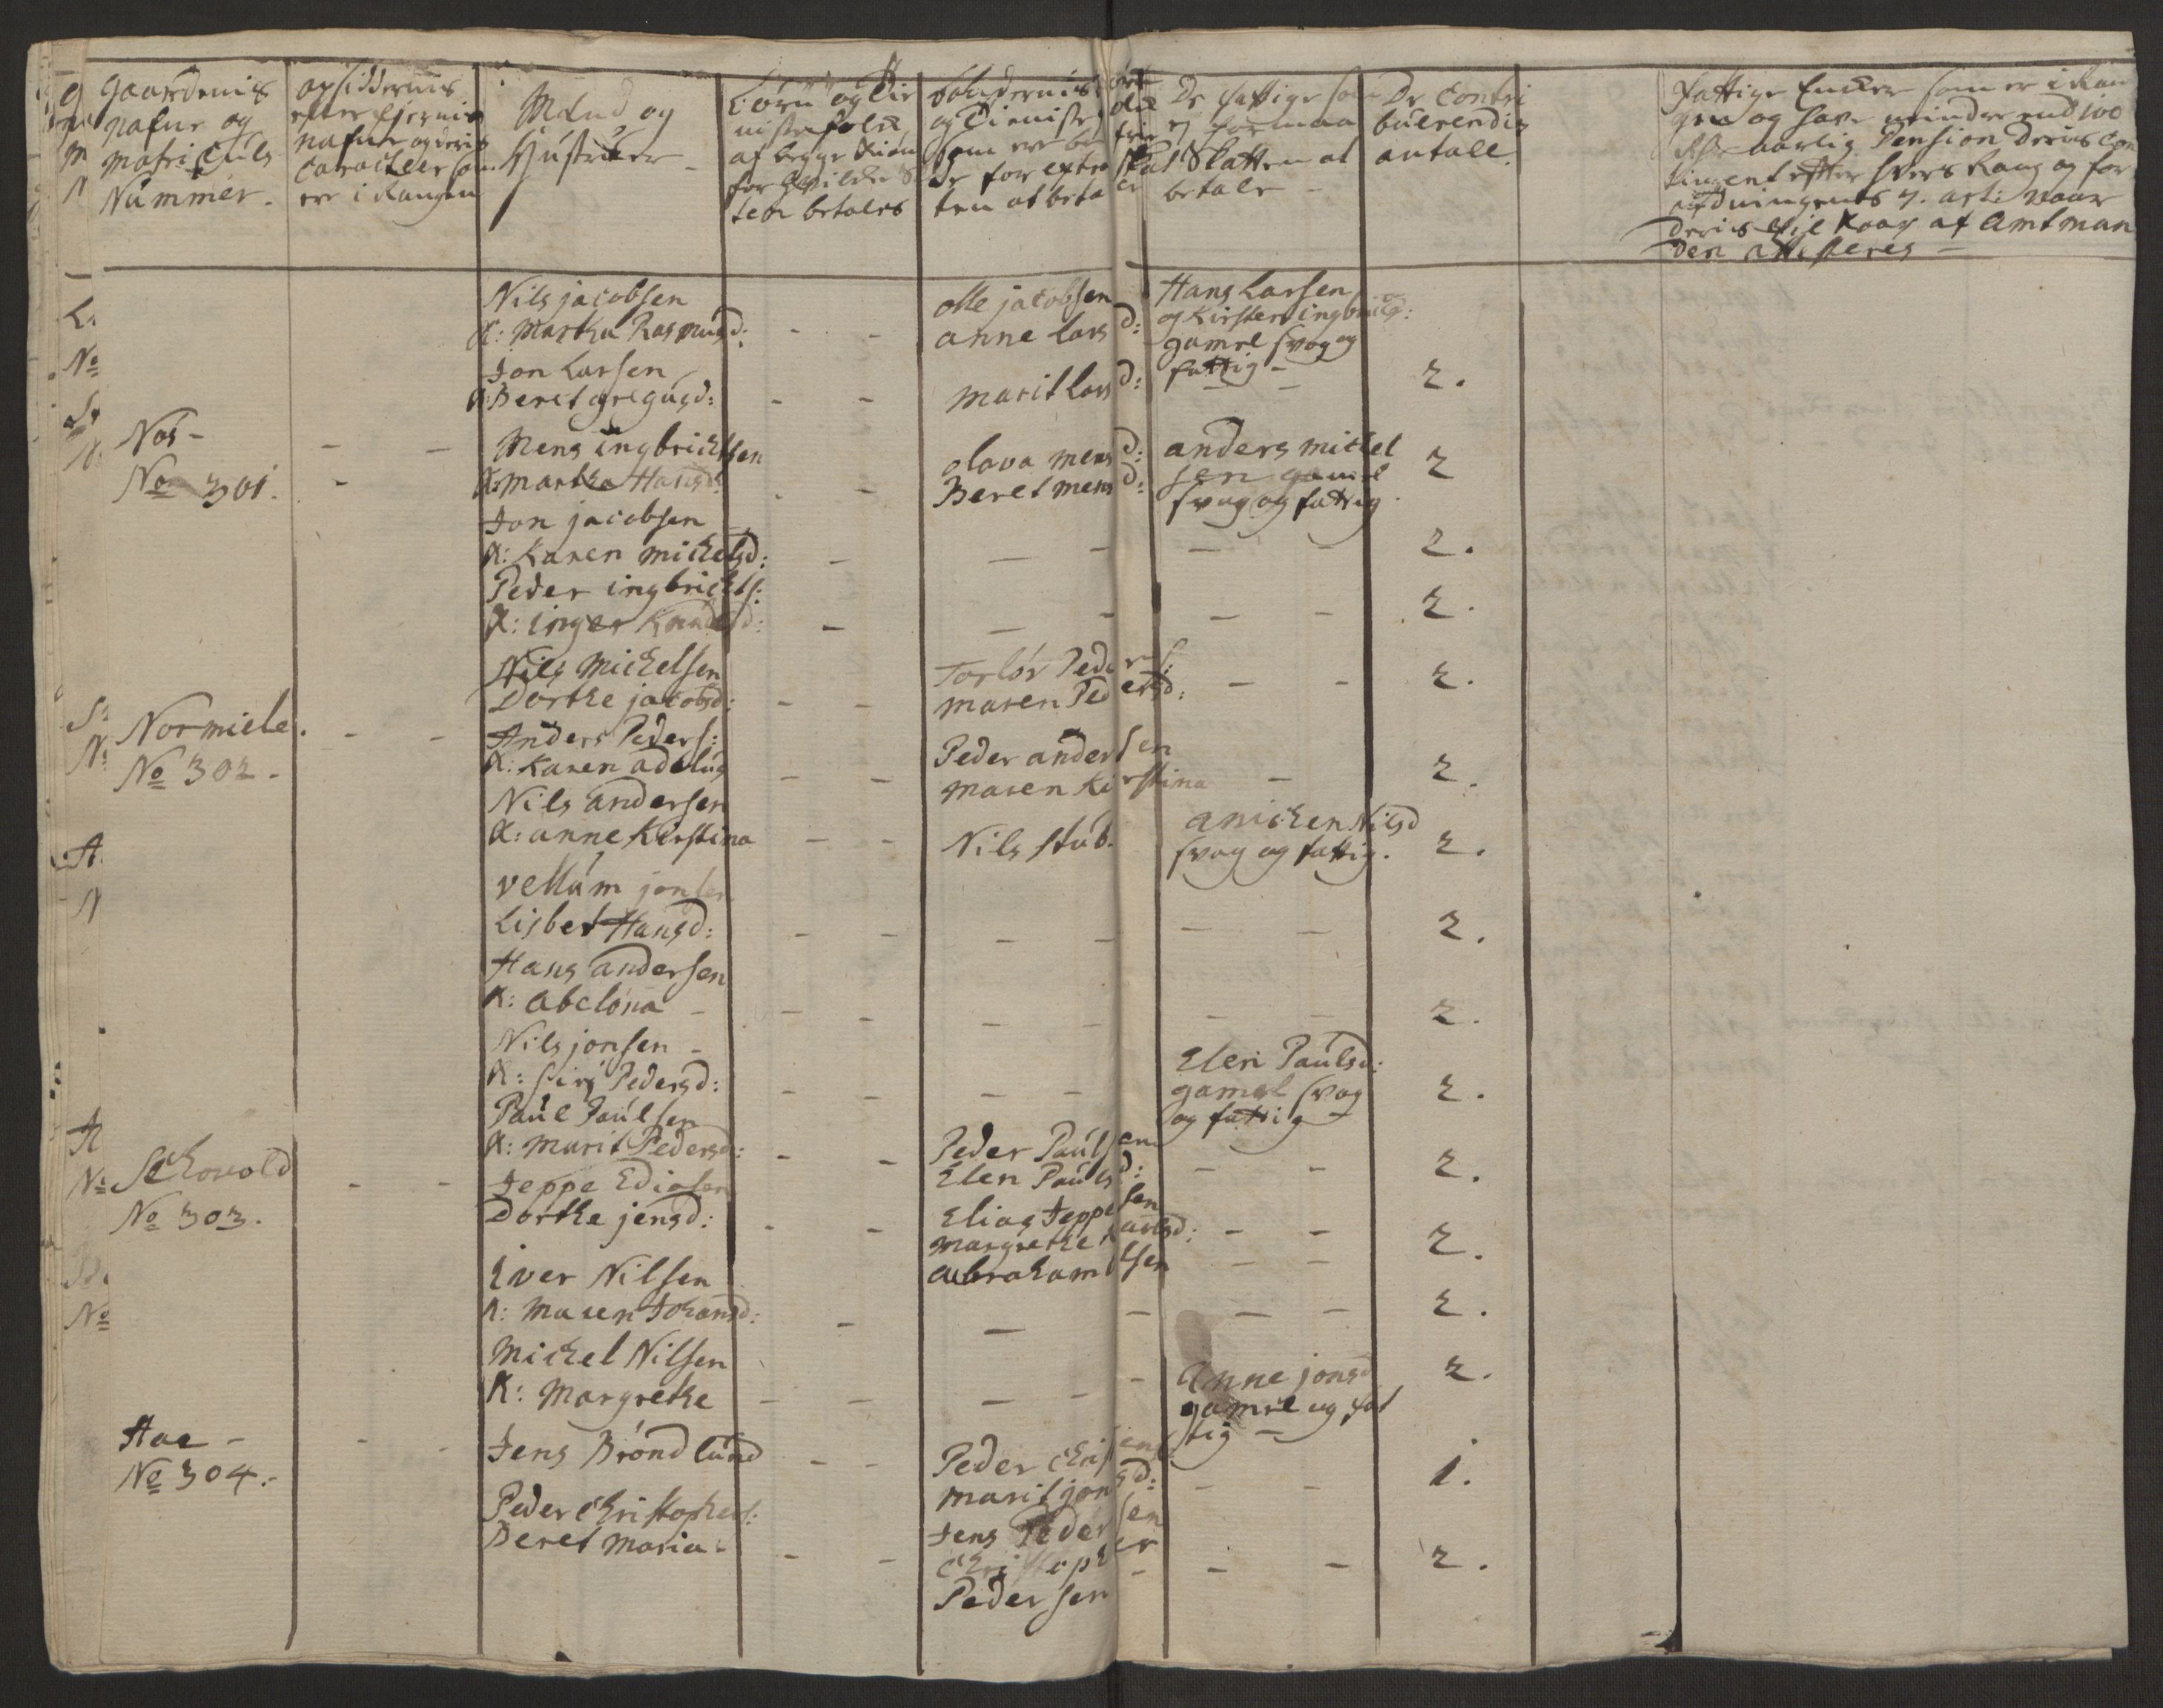 gaardenis
nafne og
Matriculs
Nummer.
opsiddernis
eller Ejernis
nafne og deris
Caracteer som
er i Rangen
Mænd og
Hústruer
Børn og Tie
niste folk
af begge Kiøn
for hvilke
ten betales
og Tieniste
som er be
De fattige som
ej formaa
Skatten at
betale
De Contri
buerendis
antall.
Fattige Encker som er i Ran
gen og have mindre end 100
Rdr aarlig Pension deris Con
tingent efter hvers Rang og for
ordningens 7. art: naar
deris Vil kaar af Amtman
den attesteres
Nils jacobsen
K: Martha Rasmusd:
olle jacobsen
anne larsd:
Hans Larsen
og Kirsten ingbrigd:
gamel svag og
fattig
Jon Larsen
K: Beret gregusd:
marit larsd:
2.
Nos
No 301.
Mens ingbrichtsen
K: martha Hansd:
olava mensd:
Beret mensd:
anders michel
sen gamel
svag og fattig
2
Jon jacobsen
K: Karen michelsd:
2.
Peder ingbrichts:
K: inger Knudsd:
2.
Nils Michelsen
Dorthe jacobsd:
Torlør Peders:
maren Pedersd:
2.
Normiele.
No 302
Anders Peders:
K: Karen adelus
Peder andersen
maren Kirstina
2.
Nils andersen
K: anne Kirstina
Nils stub.
anichen Nilsd
svag og fattig.
2.
vellum jonsen
Lisbet Hansd:
2.
Hans andersen
K: abelona
2.
Nils jonsen
K: siri Pedersd:
Elen Paulsd:
gamel svag
og fattig
2.
Paul Paulsen
K: Marit Pedersd:
Peder Paulsen
Elen Paulsd:
2.
Schovold
No 303.
Jeppe Ediasen
Dorthe jensd:
Elias Jeppesen
margrethe Larsd:
abraham
2.
Iver Nilsen
K: Maren Johansd:
2.
Michel Nilsen
K: Margrethe
Anne jonsd
gamel og fat
tig
2.
Aae
No 304.
Jens Brøndlund
Peder Chrisens
marit jonsd:
1.
Peder Christophers:
Beret Maria
Jens Pedersen
Christopher
Pedersen
2.